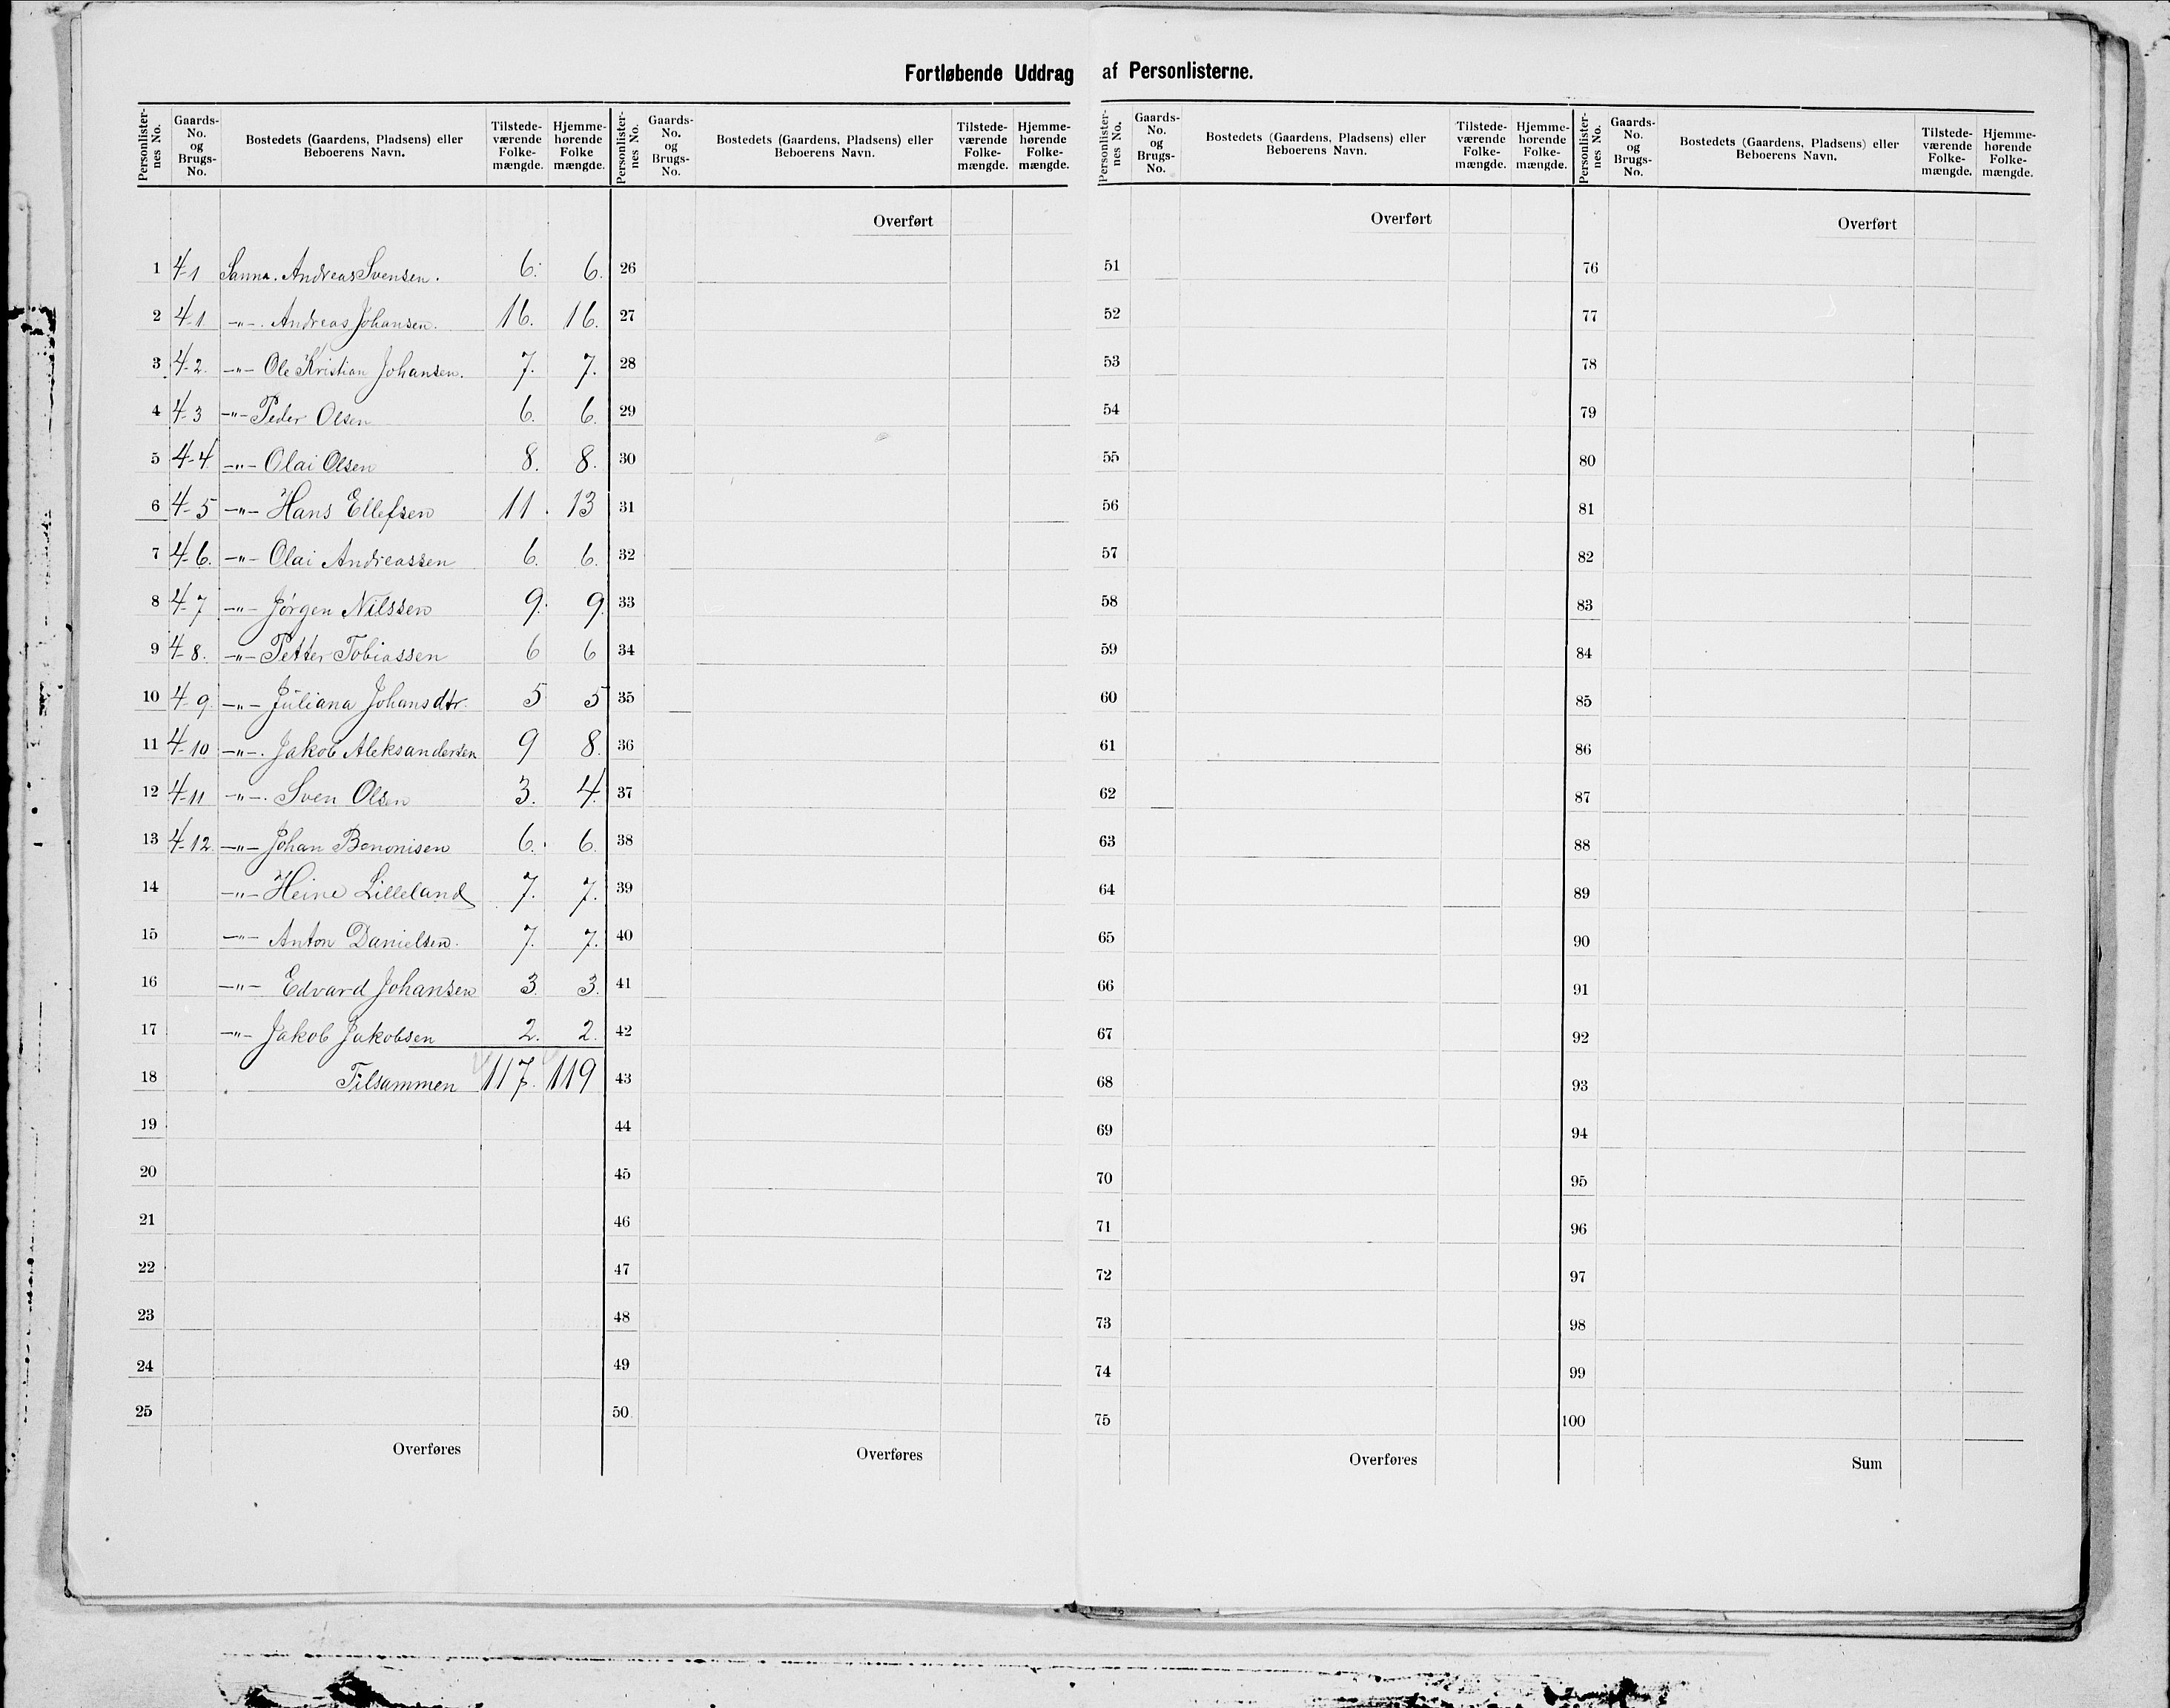 Fortløbende Uddrag af Personlisterne.
Personlister-nes No. Gaards-No. og Brugs-No. Bostedets (Gaardens, Pladsens) eller Beboerens Navn. Tilstede-værende Folke-mængde. Hjemme-hørende Folke mængde.
1 4-1 Sanna. Andreas Svensen. 6. 6.
2 4-1 -"-. Andreas Johansen. 16. 16.
3 4-2. -"- Ole Kristian Johansen. 7. 7.
4 4-3 -"- Peder Olsen 6. 6.
5 4-4 -"- Olai Olsen 8. 8.
6 4-5 -"- Hans Ellefsen 11. 13
7 4-6. -"- Olai Andreassen 6. 6.
8 4-7 -"- Jørgen Nilssen 9. 9.
9 4-8. -"- Petter Tobiassen 6 6
10 4-9. -"- Juliana Johansdtr. 5 5
11 4-10 -"-. Jakob Aleksandersen 9 8.
12 4-11 -"-. Sven Olsen 3. 4.
13 4-12. -"- Johan Benonisen 6. 6.
14 -"- Heine Lilleland 7. 7.
15 -"- Anton Danielsen. 7. 7.
16 -"- Edvard Johansen 3. 3.
17 -"- Jakob Jakobsen 2. 2.
18 Tilsammen 117. 119
19
20
21
22
23
24
25
Overføres
Personlister-nes No. Gaards-No. og Brugs-No. Bostedets (Gaardens, Pladsens) eller Beboerens Navn. Tilstede-værende Folke-mængde. Hjemme-hørende Folke-mængde.
Overført
26
27
28
29
30
31
32
33
34
35
36
37
38
39
40
41
42
43
44
45
46
47
48
49
50
Overføres
Personlister-nes No. Gaards-No. og Brugs-No. Bostedets (Gaardens, Pladsens) eller Beboerens Navn. Tilstede-værende Folke-mængde. Hjemme-hørende Folke-mængde.
Overført
51
52
53
54
55
56
57
58
59
60
61
62
63
64
65
66
67
68
69
70
71
72
73
74
75
Overføres
Personlister-nes No. Gaards-No. og Brugs-No. Bostedets (Gaardens, Pladsens) eller Beboerens Navn. Tilstede-værende Folke-mængde. Hjemme-hørende Folke-mængde.
Overført
76
77
78
79
80
81
82
83
84
85
86
87
88
89
90
91
92
93
94
95
96
97
98
99
100
Sum